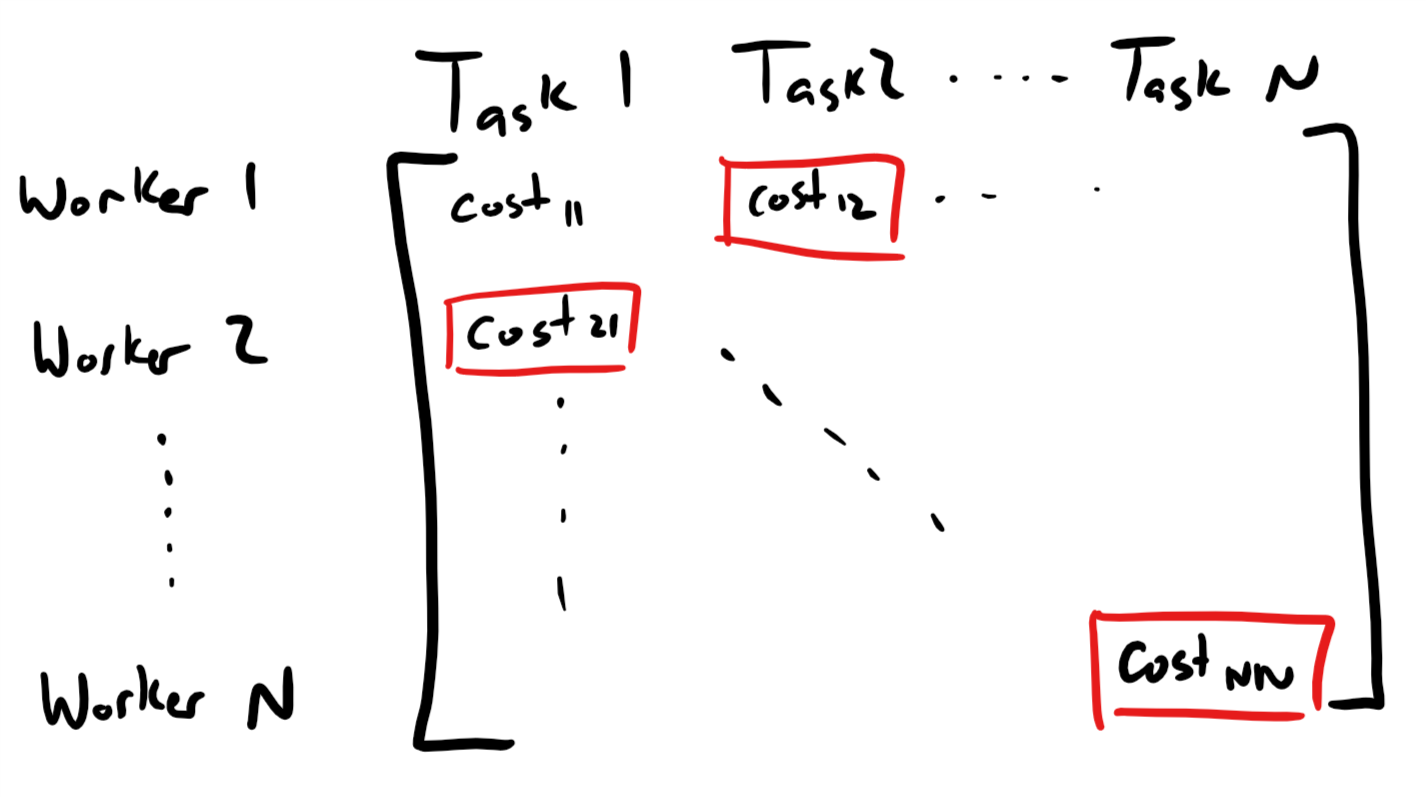 Task 1 Task 2 ..... Task N
Worker 1 cost 11 cost 12 .. .
Worker 2 cost 21
Worker N cost NN